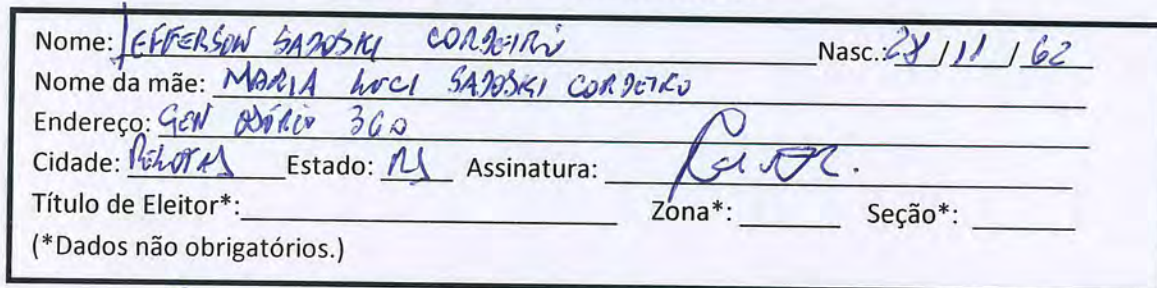 Nome: JEFFERSON SADOSKI CORDEIRO Nasc.: 28 / 11 / 62
Nome da mãe: MARIA LUCI SADOSKI CORDEIRO
Endereço: GEN OSÓRIO 360
Cidade: PELOTAS Estado: RS Assinatura:
Título de Eleitor*: Zona*: Seção*:
(*Dados não obrigatórios.)